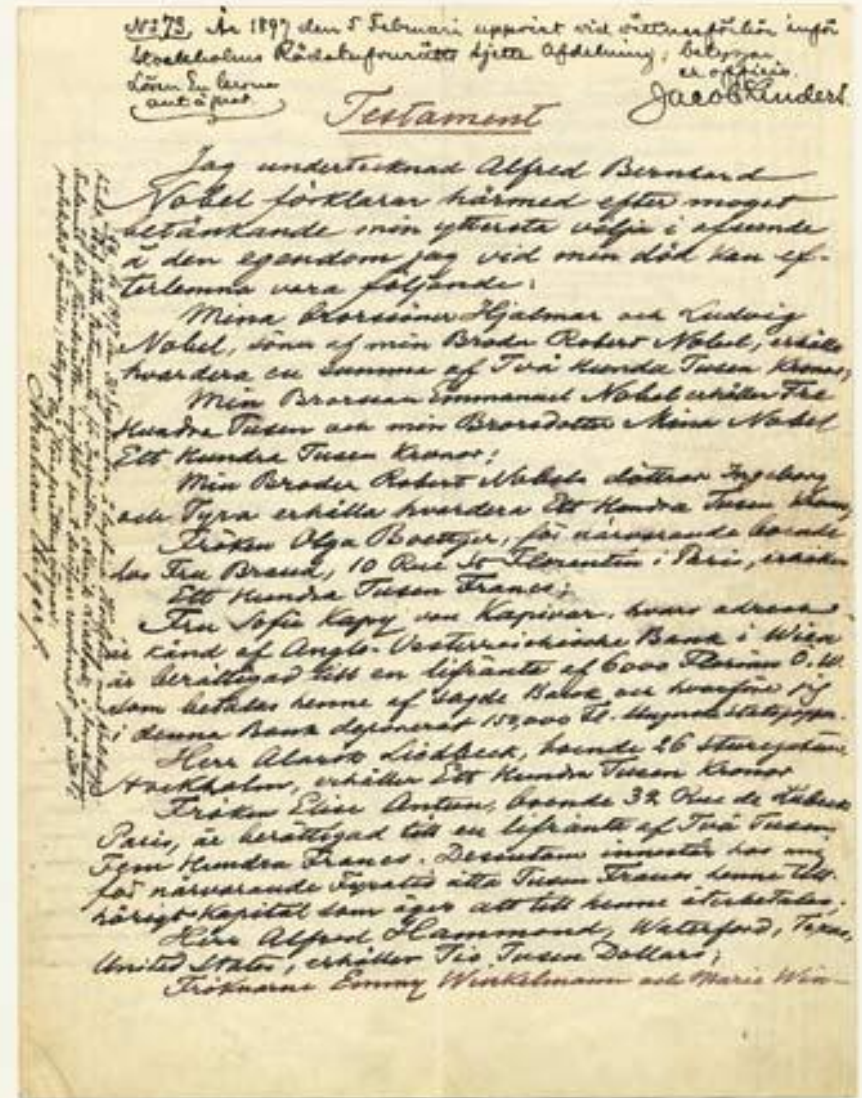 No 73. År 1897 den 5 Februari uppvist vid vittnesförhör inför
Stockholms Rådstufvurätts sjette Afdelning; betygar
Lösen En krona
ex officio.
Testament
Jag undertecknad Alfred Bernhard
Nobel förklarar härmed efter moget
betänkande min yttersta vilja i afseende
å den egendom jag vid min död kan ef-
terlemna vara följande:
Mina Brorsöner Hjalmar och Ludvig
Nobel, söner af min Broder Robert Nobel, erhålla
hvardera en summa af Två Hundra Tusen Kronor;
Min Brorson Emmanuel Nobel erhåller Tre
Hundra Tusen och min Brorsdotter Mina Nobel
Ett Hundra Tusen Kronor;
Min Broder Robert Nobels döttrar Ingeborg
och Tyra erhålla hvardera Ett Hundra Tusen Kronor;
Fröken Olga Boettger, för närvarande boende
hos Fru Brand, 10 Rue St Florentin i Paris, erhåller
Ett Hundra Tusen Francs;
Fru Sofie Kapy von Kapivar, hvars adress
är känd af Anglo-Oesterreichische Bank i Wien
är berättigad till en lifränta af 6000 Florins Ö.W.
som betalas henne af sagde Bank och hvarföre jag
i denna Bank deponerat 150,000 Fl. i
Herr Alarik Liedbeck, boende 26 Sturegatan,
Stockholm, erhåller Ett Hundra Tusen Kronor
Fröken Elise Antun, boende 32 Rue de Lubeck
Paris, är berättigad till en lifränta af Två Tusen
Fem Hundra Francs. Dessutom innestår hos mig
för närvarande Fyratio åtta Tusen Francs henne till-
hörigt Kapital som äger att till henne återbetalas;
Herr Alfred Hammond, Waterford, Texas,
United States, erhåller Tio Tusen Dollars;
Fröknarne Emmy Winkelmann och Marie Win-